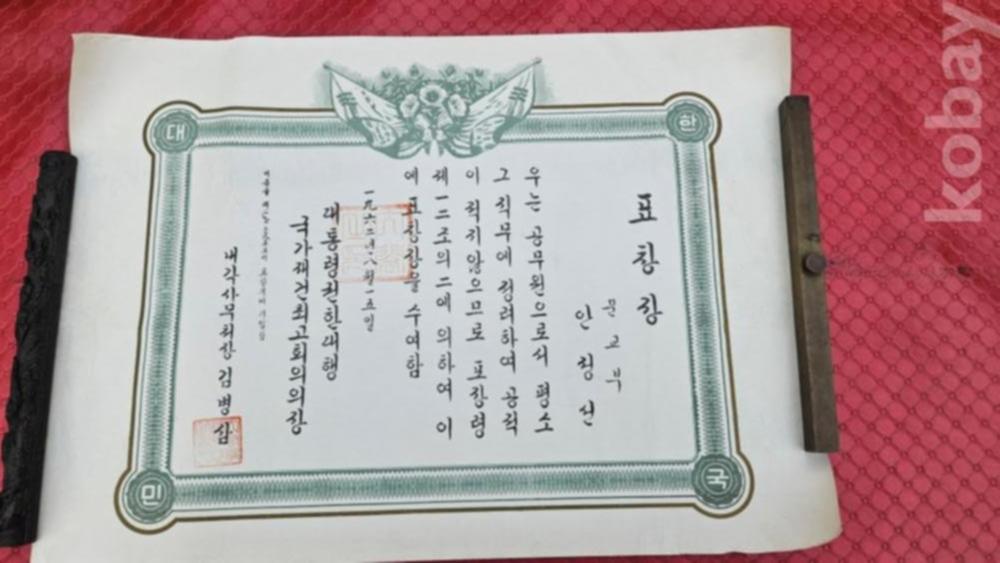 표창장
문교부
안정신
우는 공무원으로서 평소
그 직무에 정려하여 공적
이 적지않으므로 포장령
제一二조의二에 의하여 이
에 표창장을 수여함
一九六二년八월一五일
대통령권한대행
국가재건최고회의의장
내각사무처장 김병삼
대
한
민
국
kobay